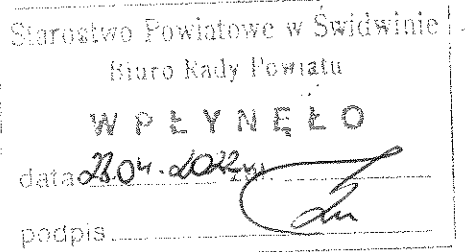 Starostwo Powiatowe w Świdwinie
Biuro Rady Powiatu
WPŁYNĘŁO
data 28.04.2022 r.
podpis